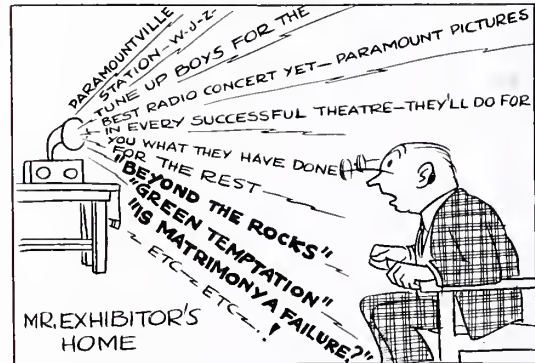 PARAMOUNTVILLE
STATION-W-J-Z-
TUNE UP BOYS FOR THE
BEST RADIO CONCERT YET-PARAMOUNT PICTURES
IN EVERY SUCCESSFUL THEATRE-THEY'LL DO FOR
YOU WHAT THEY HAVE DONE
FOR THE REST
"BEYOND THE ROCKS"
"GREEN TEMPTATION"
"IS MATRIMONY A FAILURE?"
ETC- ETC-!
MR. EXHIBITOR'S
HOME